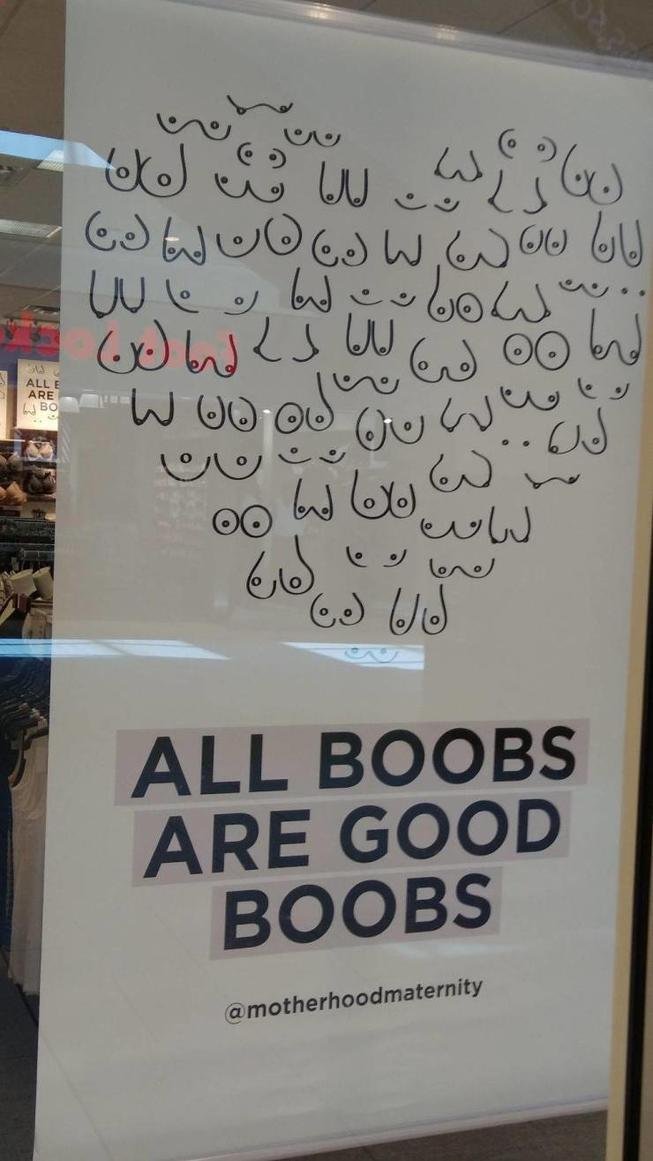 ALL BOOBS
ARE GOOD
BOOBS
@motherhoodmaternity
ALL B
ARE
BO